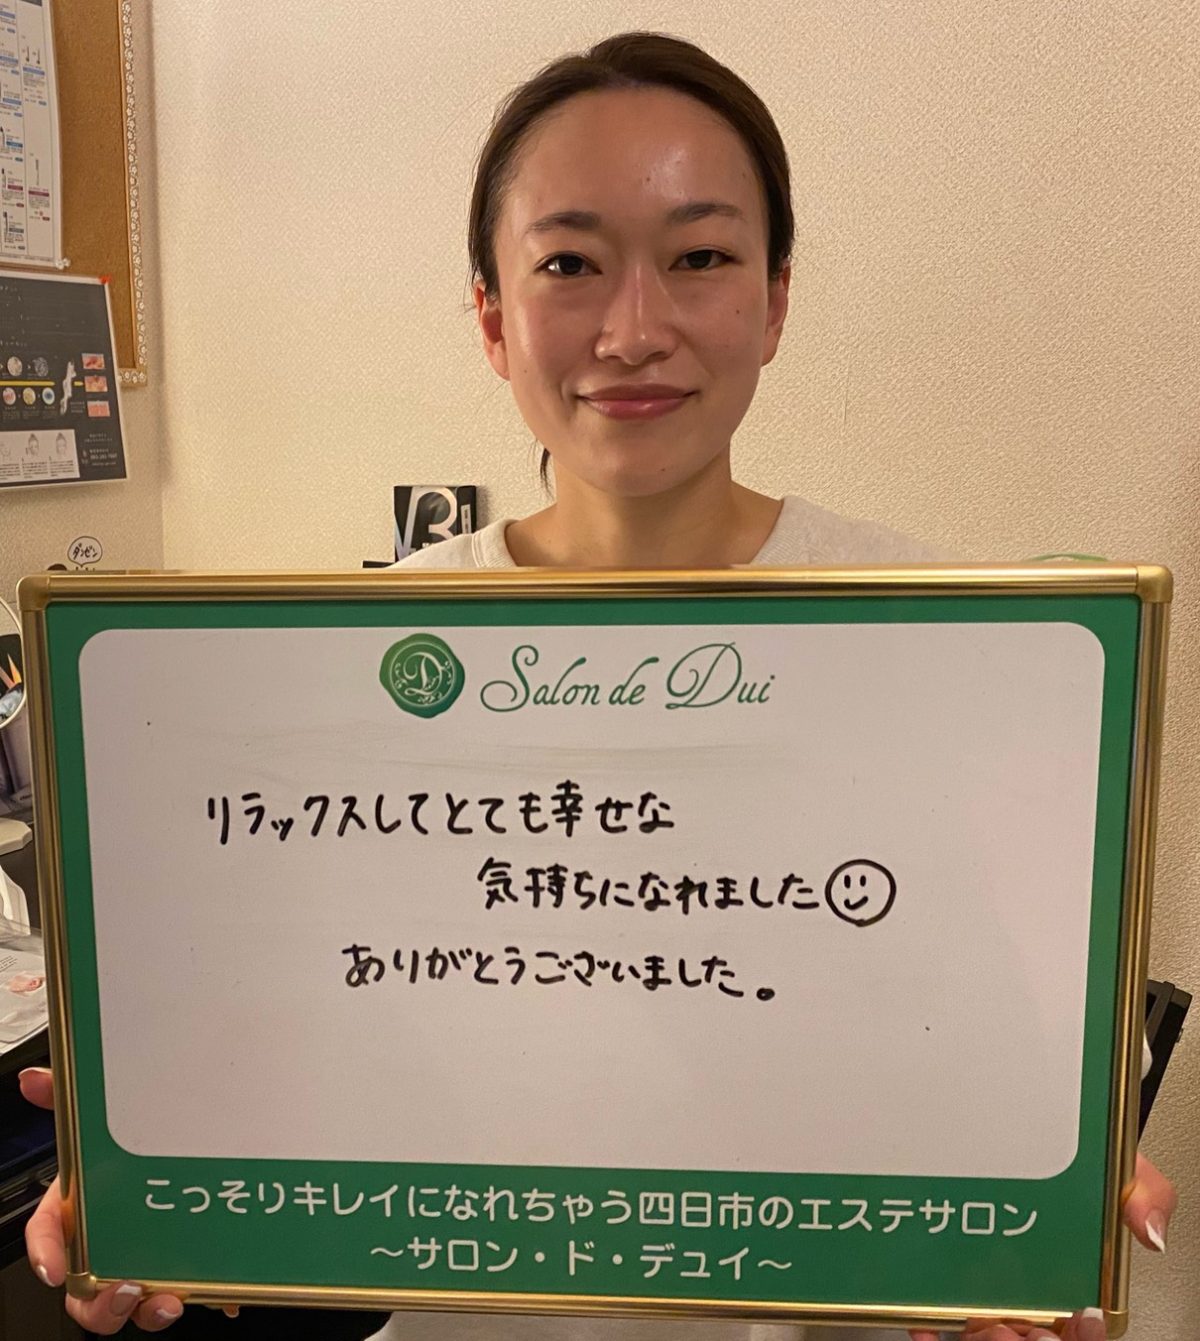 ダンゼン
Salon de Dui
リラックスしてとても幸せな
気持ちになれました
ありがとうございました。
こっそりキレイになれちゃう四日市のエステサロン
～サロン・ド・デュイ～